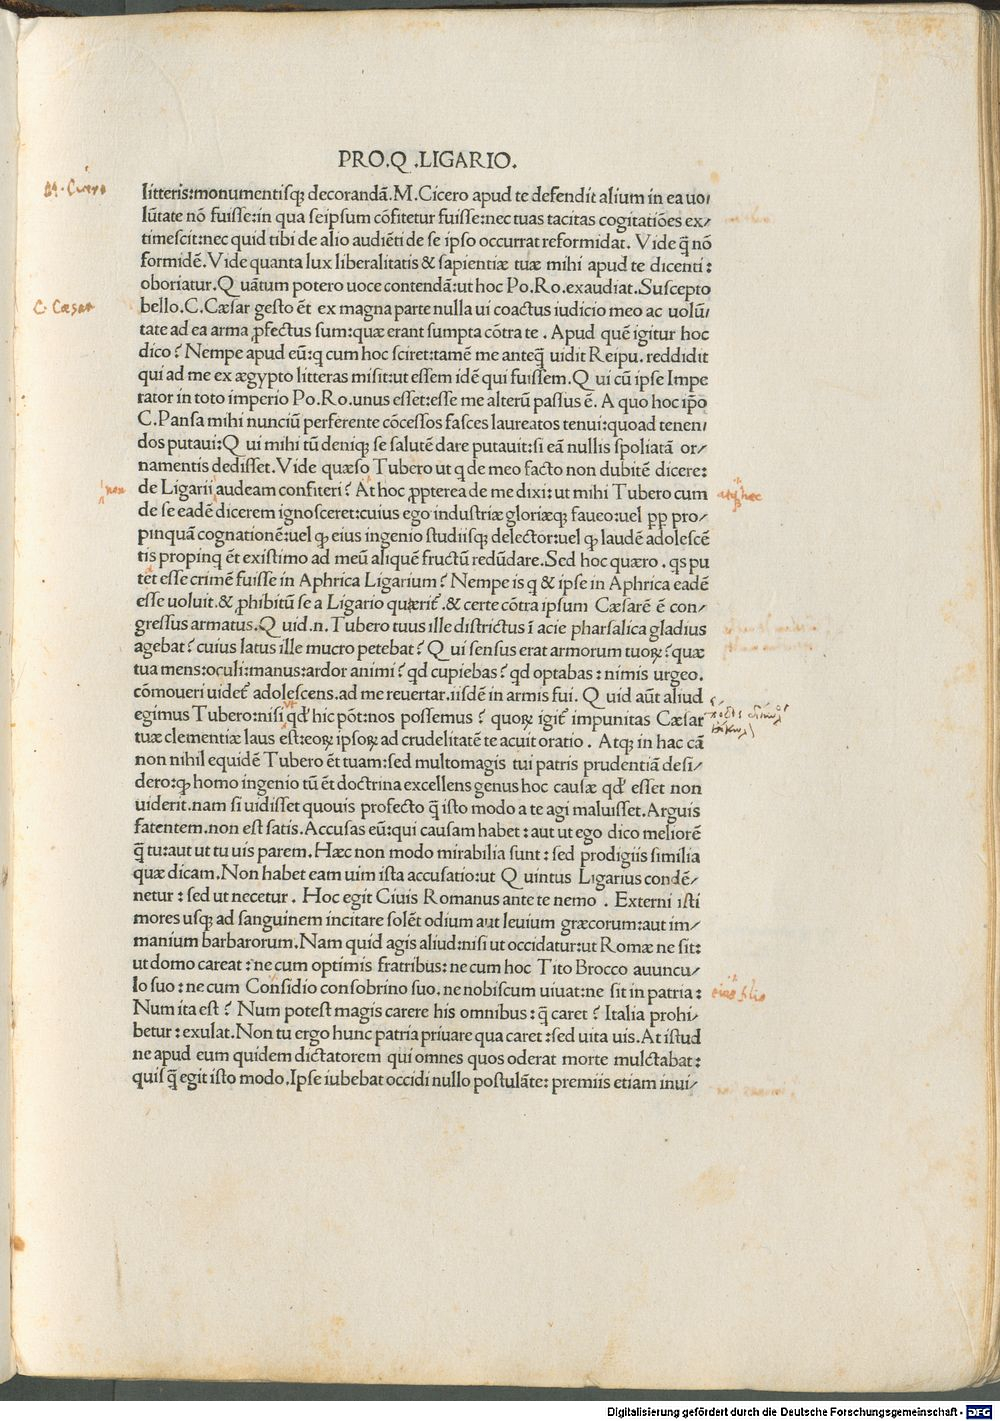 PRO.Q.LIGARIO.
M. Cicero
litteris:monumentisq; decorandā.M.Cicero apud te defendit alium in ea uo/
lūtate nō fuisse:in qua seipsum cōfitetur fuisse:nec tuas tacitas cogitatiōes ex/
timescit:nec quid tibi de alio audiēti de se ipso occurrat reformidat. Vide q̄ nō
formidē.Vide quanta lux liberalitatis & sapientiæ tuæ mihi apud te dicenti:
oboriatur.Q uātum potero uoce contendā:ut hoc Po.Ro.exaudiat.Suscepto
C. Cæsar
bello.C.Cæsar gesto ēt ex magna parte nulla ui coactus iudicio meo ac uolū/
tate ad ea arma ꝓfectus sum:quæ erant sumpta cōtra te . Apud quē igitur hoc
dico ? Nempe apud eū:q cum hoc sciret:tamē me anteq̄ uidit Reipu. reddidit
qui ad me ex ægypto litteras misit:ut essem idē qui fuissem.Q ui cū ipse Impe
rator in toto imperio Po.Ro.unus esset:esse me alterū passus ē. A quo hoc ip̄o
C.Pansa mihi nunciū perferente cōcessos fasces laureatos tenui:quoad tenen/
dos putaui:Q ui mihi tū deniq; se salutē dare putauit:si eā nullis spoliatā or/
namentis dedisset.Vide quæso Tubero ut q de meo facto non dubitē dicere:
non
de Ligarii audeam confiteri ? At hoc ꝓpterea de me dixi: ut mihi Tubero cum
atq; hæc
de se eadē dicerem ignosceret:cuius ego industriæ gloriæq; faueo:uel ꝓp pro/
pinquā cognationē:uel ꝙ eius ingenio studiisq; delector:uel ꝙ laudē adolescē
tis propinq ēt existimo ad meū aliquē fructū redūdare. Sed hoc quæro . qs pu
tet esse crimē fuisse in Aphrica Ligarium ? Nempe is q & ipse in Aphrica eadē
esse uoluit.& ꝓhibitū se a Ligario quærit̄ .& certe cōtra ipsum Cæsarē ē con/
gressus armatus.Q uid.n. Tubero tuus ille districtus ī acie pharsalica gladius
agebat ? cuius latus ille mucro petebat ? Q ui sensus erat armorum tuoꝝ ? quæ
tua mens:oculi:manus:ardor animi ? qd cupiebas ? qd optabas : nimis urgeo.
cōmoueri uidet̄ adolescens.ad me reuertar.iisdē in armis fui. Q uid aūt aliud
egimus Tubero:nisi qd' hic pōt:nos possemus ? quoꝝ igit̄ impunitas Cæsar
ut
tuæ clementiæ laus est:eoꝝ ipsoꝝ ad crudelitatē te acuit oratio . Atq; in hac cā
non nihil equidē Tubero ēt tuam:sed multomagis tui patris prudentiā desi/
dero:ꝙ homo ingenio tū ēt doctrina excellens genus hoc causæ qd' esset non
uiderit.nam si uidisset quouis profecto q̄ isto modo a te agi maluisset.Arguis
fatentem.non est satis.Accusas eū:qui causam habet : aut ut ego dico meliorē
q̄ tu:aut ut tu uis parem.Hæc non modo mirabilia sunt : sed prodigiis similia
quæ dicam.Non habet eam uim ista accusatio:ut Q uintus Ligarius condē/
netur : sed ut necetur . Hoc egit Ciuis Romanus ante te nemo . Externi isti
mores usq; ad sanguinem incitare solēt odium aut leuium græcorum:aut im/
manium barbarorum.Nam quid agis aliud:nisi ut occidatur:ut Romæ ne sit:
ut domo careat : ne cum optimis fratribus: ne cum hoc Tito Brocco auuncu/
lo suo : ne cum Considio consobrino suo. ne nobiscum uiuat:ne sit in patria :
eius filio
Num ita est ? Num potest magis carere his omnibus : q̄ caret ? Italia prohi/
betur : exulat.Non tu ergo hunc patria priuare qua caret :sed uita uis.At istud
ne apud eum quidem dictatorem qui omnes quos oderat morte mulctabat:
quisq̄ egit isto modo.Ipse iubebat occidi nullo postulāte: premiis etiam inui/
Digitalisierung gefördert durch die Deutsche Forschungsgemeinschaft - DFG